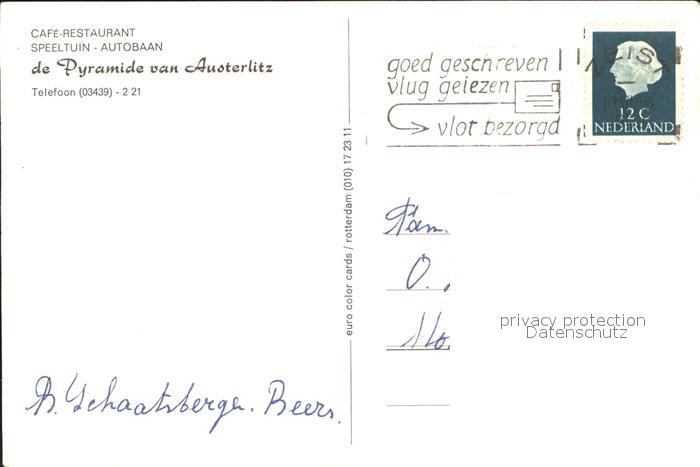 CAFÉ-RESTAURANT
SPEELTUIN - AUTOBAAN
de Pyramide van Austerlitz
Telefoon (03439) - 2 21
euro color cards / rotterdam (010) 17 23 11
goed geschreven
vlug gelezen
vlot bezorgd
ZEIST
12 C
NEDERLAND
Fam.
O.
privacy protection
Datenschutz